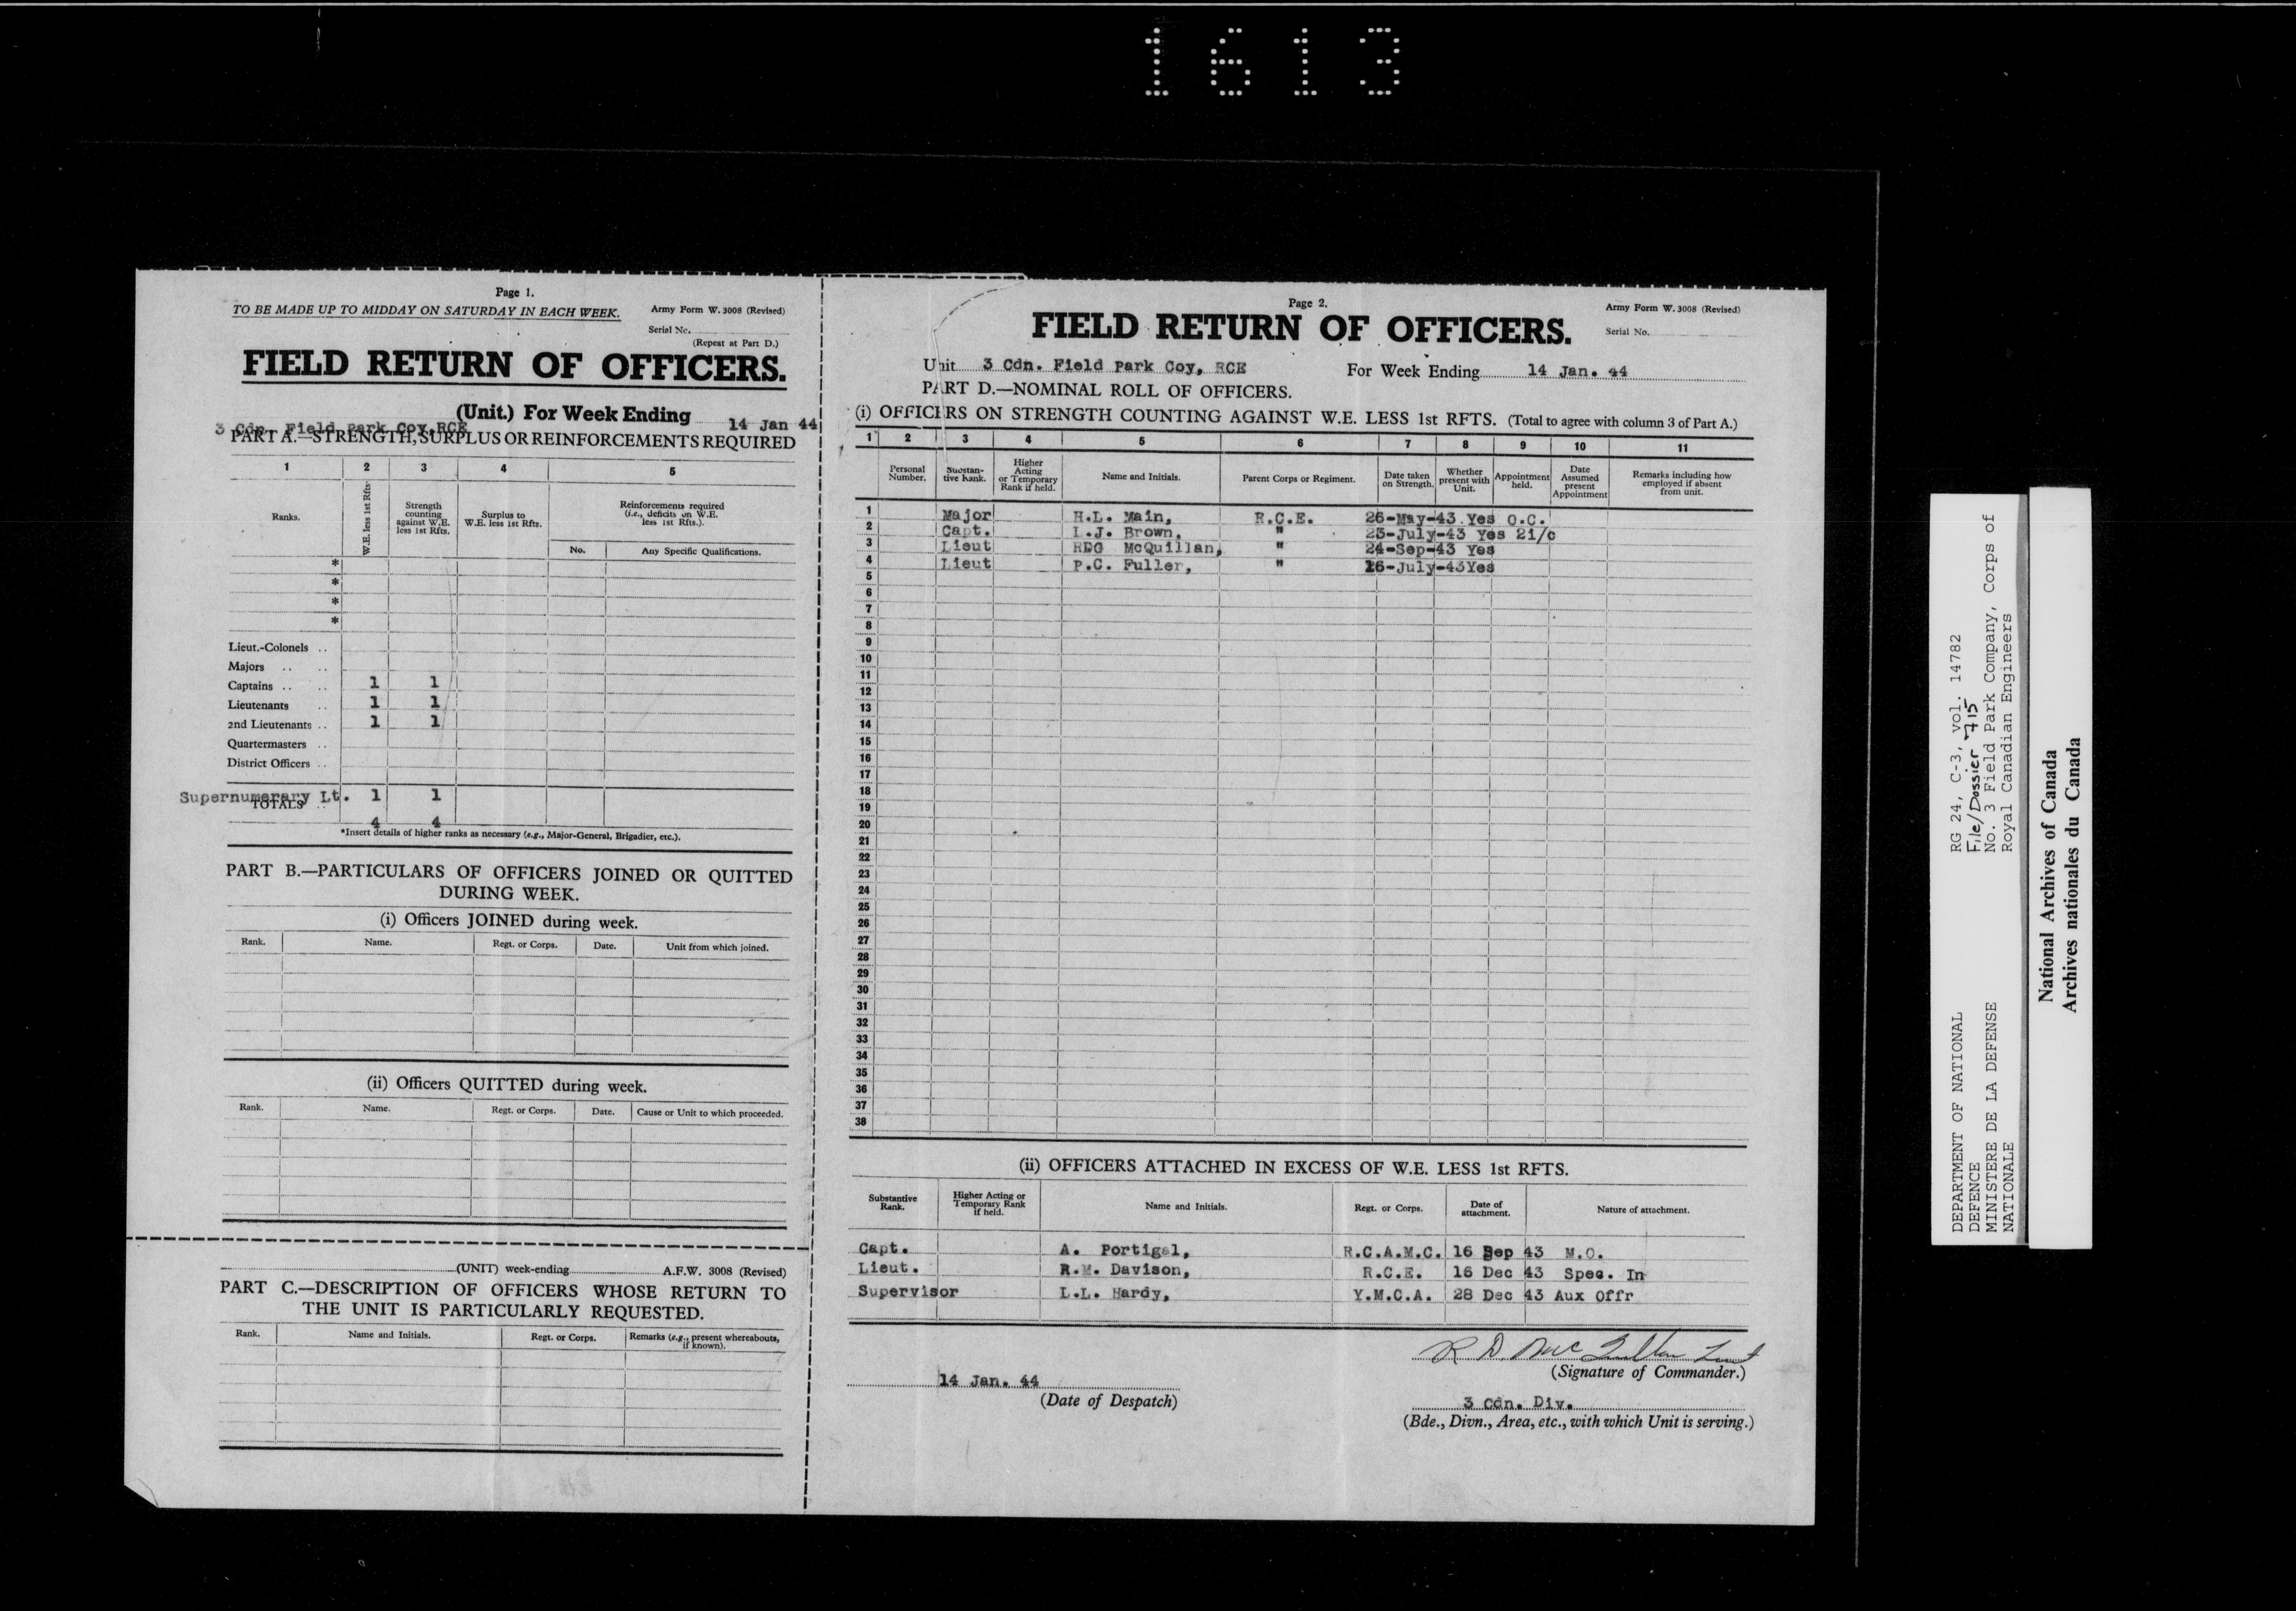 1613
Page 1.
TO BE MADE UP TO MIDDAY ON SATURDAY IN EACH WEEK.
Army Form W. 3008 (Revised)
Serial No.
(Repeat at Part D.)
FIELD RETURN OF OFFICERS.
3 Cdn. Field Park Coy, RCE (Unit.) For Week Ending 14 Jan 44
PART A.—STRENGTH, SURPLUS OR REINFORCEMENTS REQUIRED
1 2 3 4 5
Ranks. W.E. less 1st Rfts. Strength counting against W.E. less 1st Rfts. Surplus to W.E. less 1st Rfts. Reinforcements required (i.e., deficits on W.E. less 1st Rfts.).
No. Any Specific Qualifications.
*
*
*
*
Lieut.-Colonels ..
Majors .. ..
Captains .. .. 1 1
Lieutenants .. 1 1
2nd Lieutenants .. 1 1
Quartermasters ..
District Officers ..
Supernumerary Lt. 1 1
TOTALS ..
4 4
*Insert details of higher ranks as necessary (e.g., Major-General, Brigadier, etc.).
PART B.—PARTICULARS OF OFFICERS JOINED OR QUITTED
DURING WEEK.
(i) Officers JOINED during week.
Rank. Name. Regt. or Corps. Date. Unit from which joined.
(ii) Officers QUITTED during week.
Rank. Name. Regt. or Corps. Date. Cause or Unit to which proceeded.
(UNIT) week-ending A.F.W. 3008 (Revised)
PART C.—DESCRIPTION OF OFFICERS WHOSE RETURN TO
THE UNIT IS PARTICULARLY REQUESTED.
Rank. Name and Initials. Regt. or Corps. Remarks (e.g., present whereabouts, if known).
Page 2.
Army Form W. 3008 (Revised)
FIELD RETURN OF OFFICERS.
Serial No.
Unit 3 Cdn. Field Park Coy, RCE For Week Ending 14 Jan. 44
PART D.—NOMINAL ROLL OF OFFICERS.
(i) OFFICERS ON STRENGTH COUNTING AGAINST W.E. LESS 1st RFTS. (Total to agree with column 3 of Part A.)
1 2 3 4 5 6 7 8 9 10 11
Personal Number. Substantive Rank. Higher Acting or Temporary Rank if held. Name and Initials. Parent Corps or Regiment. Date taken on Strength. Whether present with Unit. Appointment held. Date Assumed present Appointment Remarks including how employed if absent from unit.
1 Major H.L. Main, R.C.E. 26-May-43 Yes O.C.
2 Capt. L.J. Brown, " 25-July-43 Yes 2i/c
3 Lieut RDG McQuillan, " 24-Sep-43 Yes
4 Lieut P.C. Fuller, " 16-July-43 Yes
5
6
7
8
9
10
11
12
13
14
15
16
17
18
19
20
21
22
23
24
25
26
27
28
29
30
31
32
33
34
35
36
37
38
(ii) OFFICERS ATTACHED IN EXCESS OF W.E. LESS 1st RFTS.
Substantive Rank. Higher Acting or Temporary Rank if held. Name and Initials. Regt. or Corps. Date of attachment. Nature of attachment.
Capt. A. Portigal, R.C.A.M.C. 16 Sep 43 M.O.
Lieut. R.M. Davison, R.C.E. 16 Dec 43 Spec. In
Supervisor L.L. Hardy, Y.M.C.A. 28 Dec 43 Aux Offr
R D McQuillan Lieut
(Signature of Commander.)
14 Jan. 44
(Date of Despatch)
3 Cdn. Div.
(Bde., Divn., Area, etc., with which Unit is serving.)
DEPARTMENT OF NATIONAL
DEFENCE
MINISTERE DE LA DEFENSE
NATIONALE
RG 24, C-3, vol. 14782
File/Dossier 715
No. 3 Field Park Company, Corps of
Royal Canadian Engineers
National Archives of Canada
Archives nationales du Canada